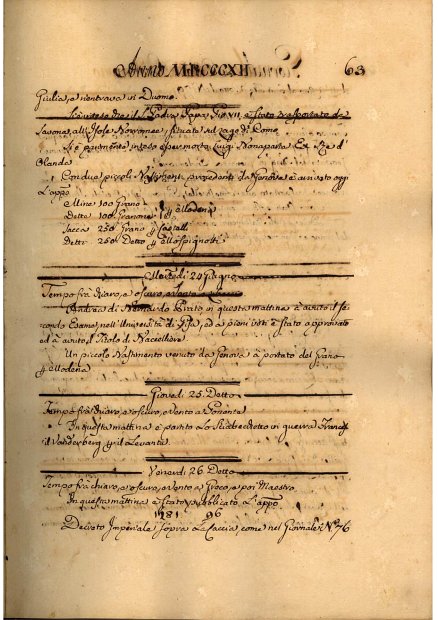 Anno MDCCCXII. 63
Giulia, e rientrava in Duomo.
Si è inteso che il S. Padre Papa Pio VII, è stato trasportato da
Savona, all' Isole Borromee situate sul Lago di Como
Si è parimente inteso esser morto Luigi Bonaparte Ex Re d'
Olanda
Con due piccoli Bastimenti procedenti da Genova è arrivato oggi
L'appo
Mine 100 Grano
Dette 100 Granone p Modena
Sacca 250 Grano p
Dette 250 Detto p
Mercoledì 24 Giugno
Tempo frà chiaro, e oscuro,
Andrea di Bernardo in questa mattina à avuto il se-
condo Esame, nell'Università di Pisa, ed a pieni voti è stato approvato
ed à avuto il titolo di Baccelliere.
Un piccolo Bastimento venuto da Genova à portato del Grano
p Modena
Giovedì 25. Detto
Tempo frà chiaro, e oscuro, e vento a Ponente
In questa mattina è partito Lo Sciabecchetto in guerra Francese
il Vanderberg p il Levante.
Venerdì 26. Detto
Tempo frà chiaro, e oscuro, e vento a Greco, e poi Maestro
In questa mattina è stato pubblicato L'appo
1781 96
Decreto Imperiale sopra La Caccia come nel Giornale N.º 76